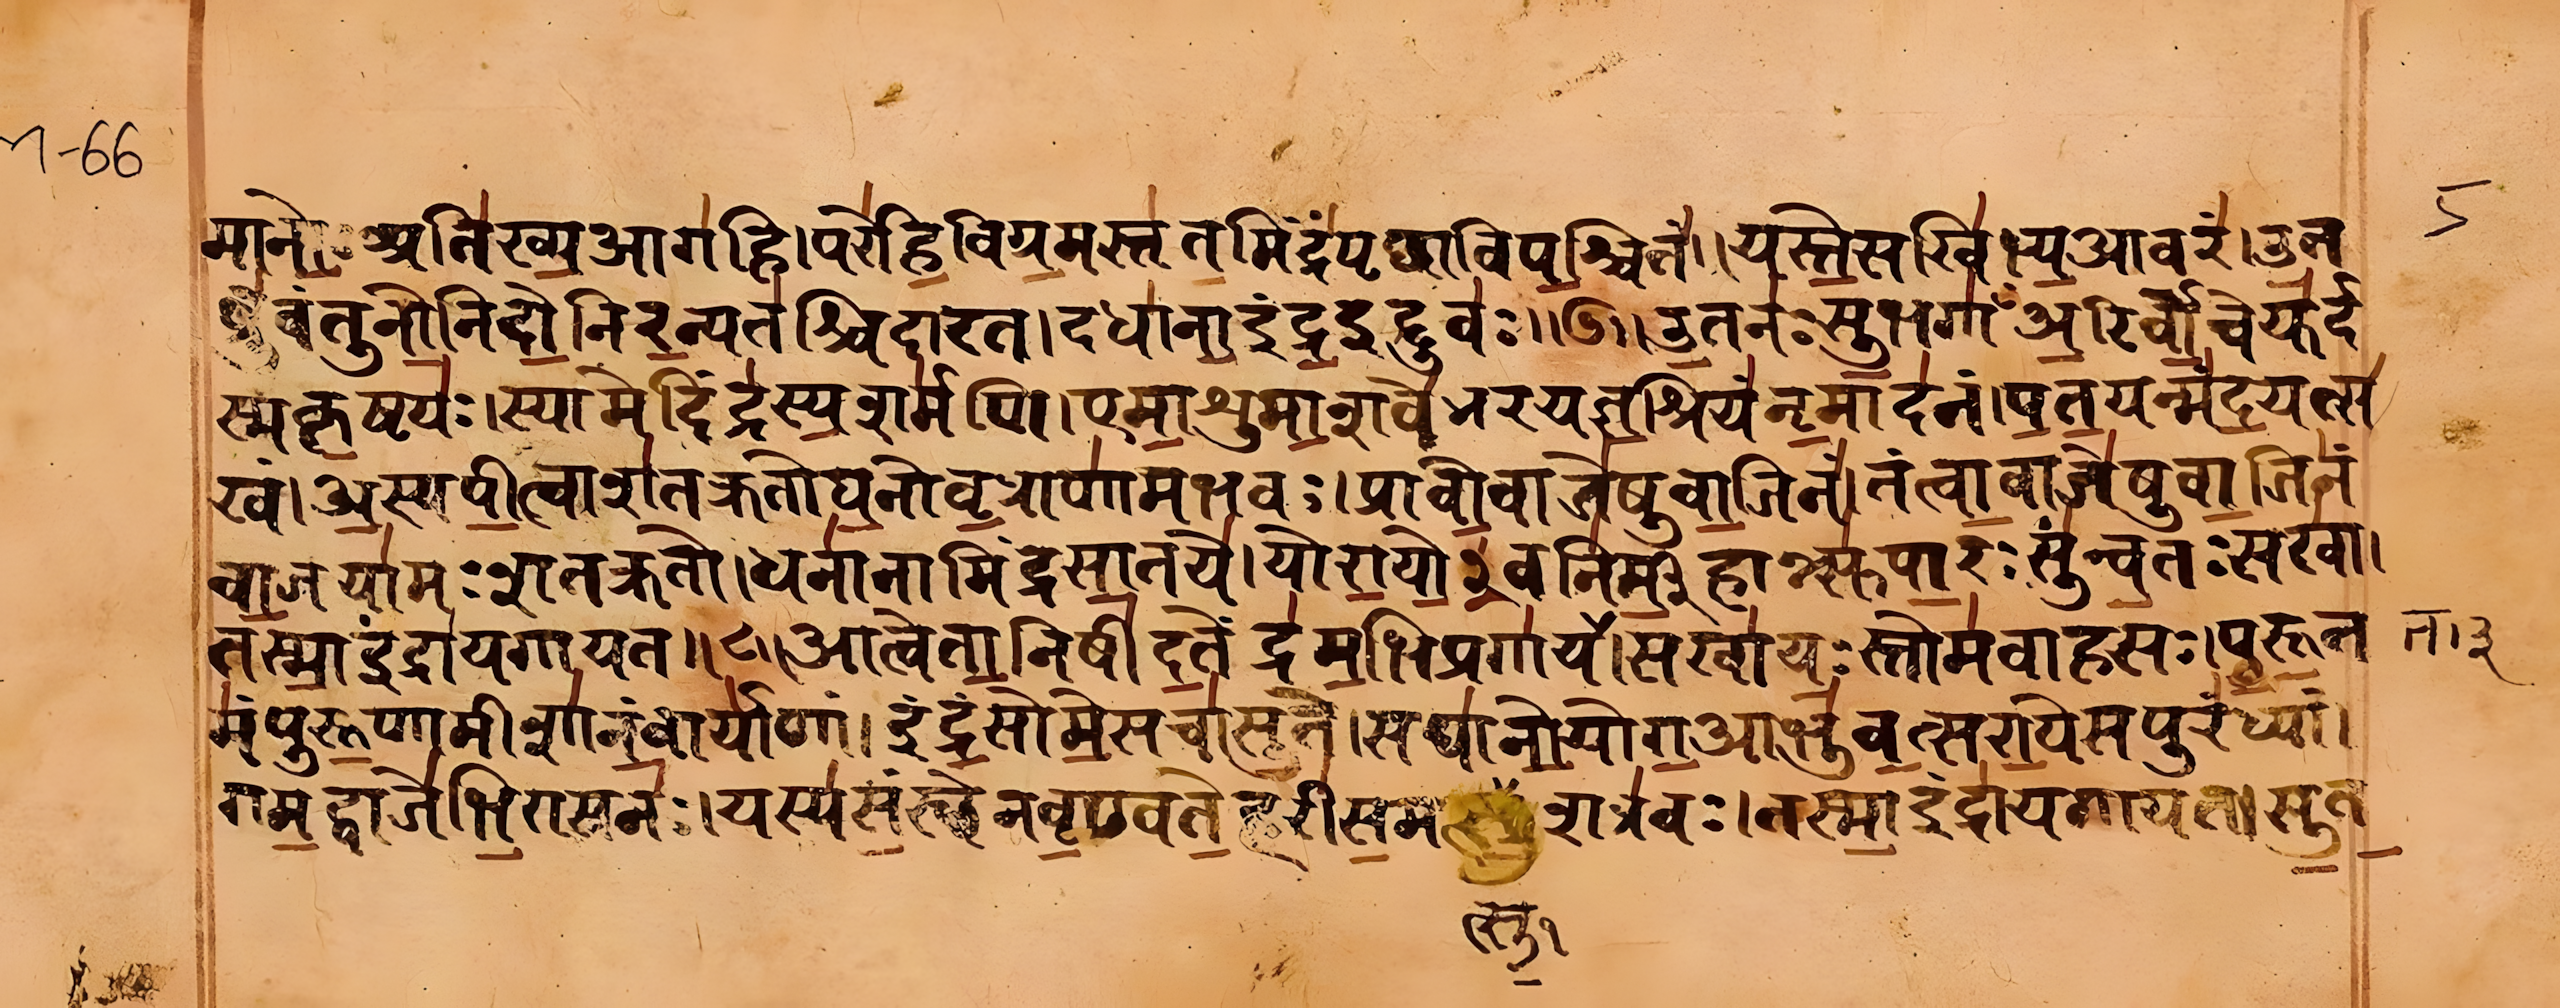 M-66
5
मानोअतिख्यआगहि।परेहिविग्रमस्तृतमिंद्रंपृच्छाविपश्चितं॥यस्तेसखिभ्यआवरं।उत
ब्रुवंतुनोनिदोनिरन्यतश्चिदारत।दधानाइंद्रइद्दुवः॥७॥उतनःसुभगाँअरिर्वोचेयुर्द
स्मकृष्टयः।स्यामेदिंद्रस्यशर्मणि।एमाशुमाशवेभरयज्ञश्रियंनृमादनं।पतयन्मंदयत्स
खं।अस्यपीत्वाशतक्रतोघनोवृत्राणामभवः।प्रावोवाजेषुवाजिनं।तंत्वावाजेषुवाजिनं
वाजयामःशतक्रतो।धनानामिंद्रसातये।योरायो३वनिर्म३हान्त्सुपारःसुन्वतःसखा।
तस्माइंद्रायगायत॥८॥आत्वेतानिषीदतेंद्रमभिप्रगायत।सखायःस्तोमवाहसः।पुरूत
त।३
मंपुरूणामीशानंवार्याणां।इंद्रंसोमेसचासुते।सघानोयोगआभुवत्सरायेसपुरंध्यां।
गमद्वाजेभिरासनः।यस्यसंस्थेनवृण्वतेहरीसमत्सुशत्रवः।तस्माइंद्रायगायत।सुत
त्सु१